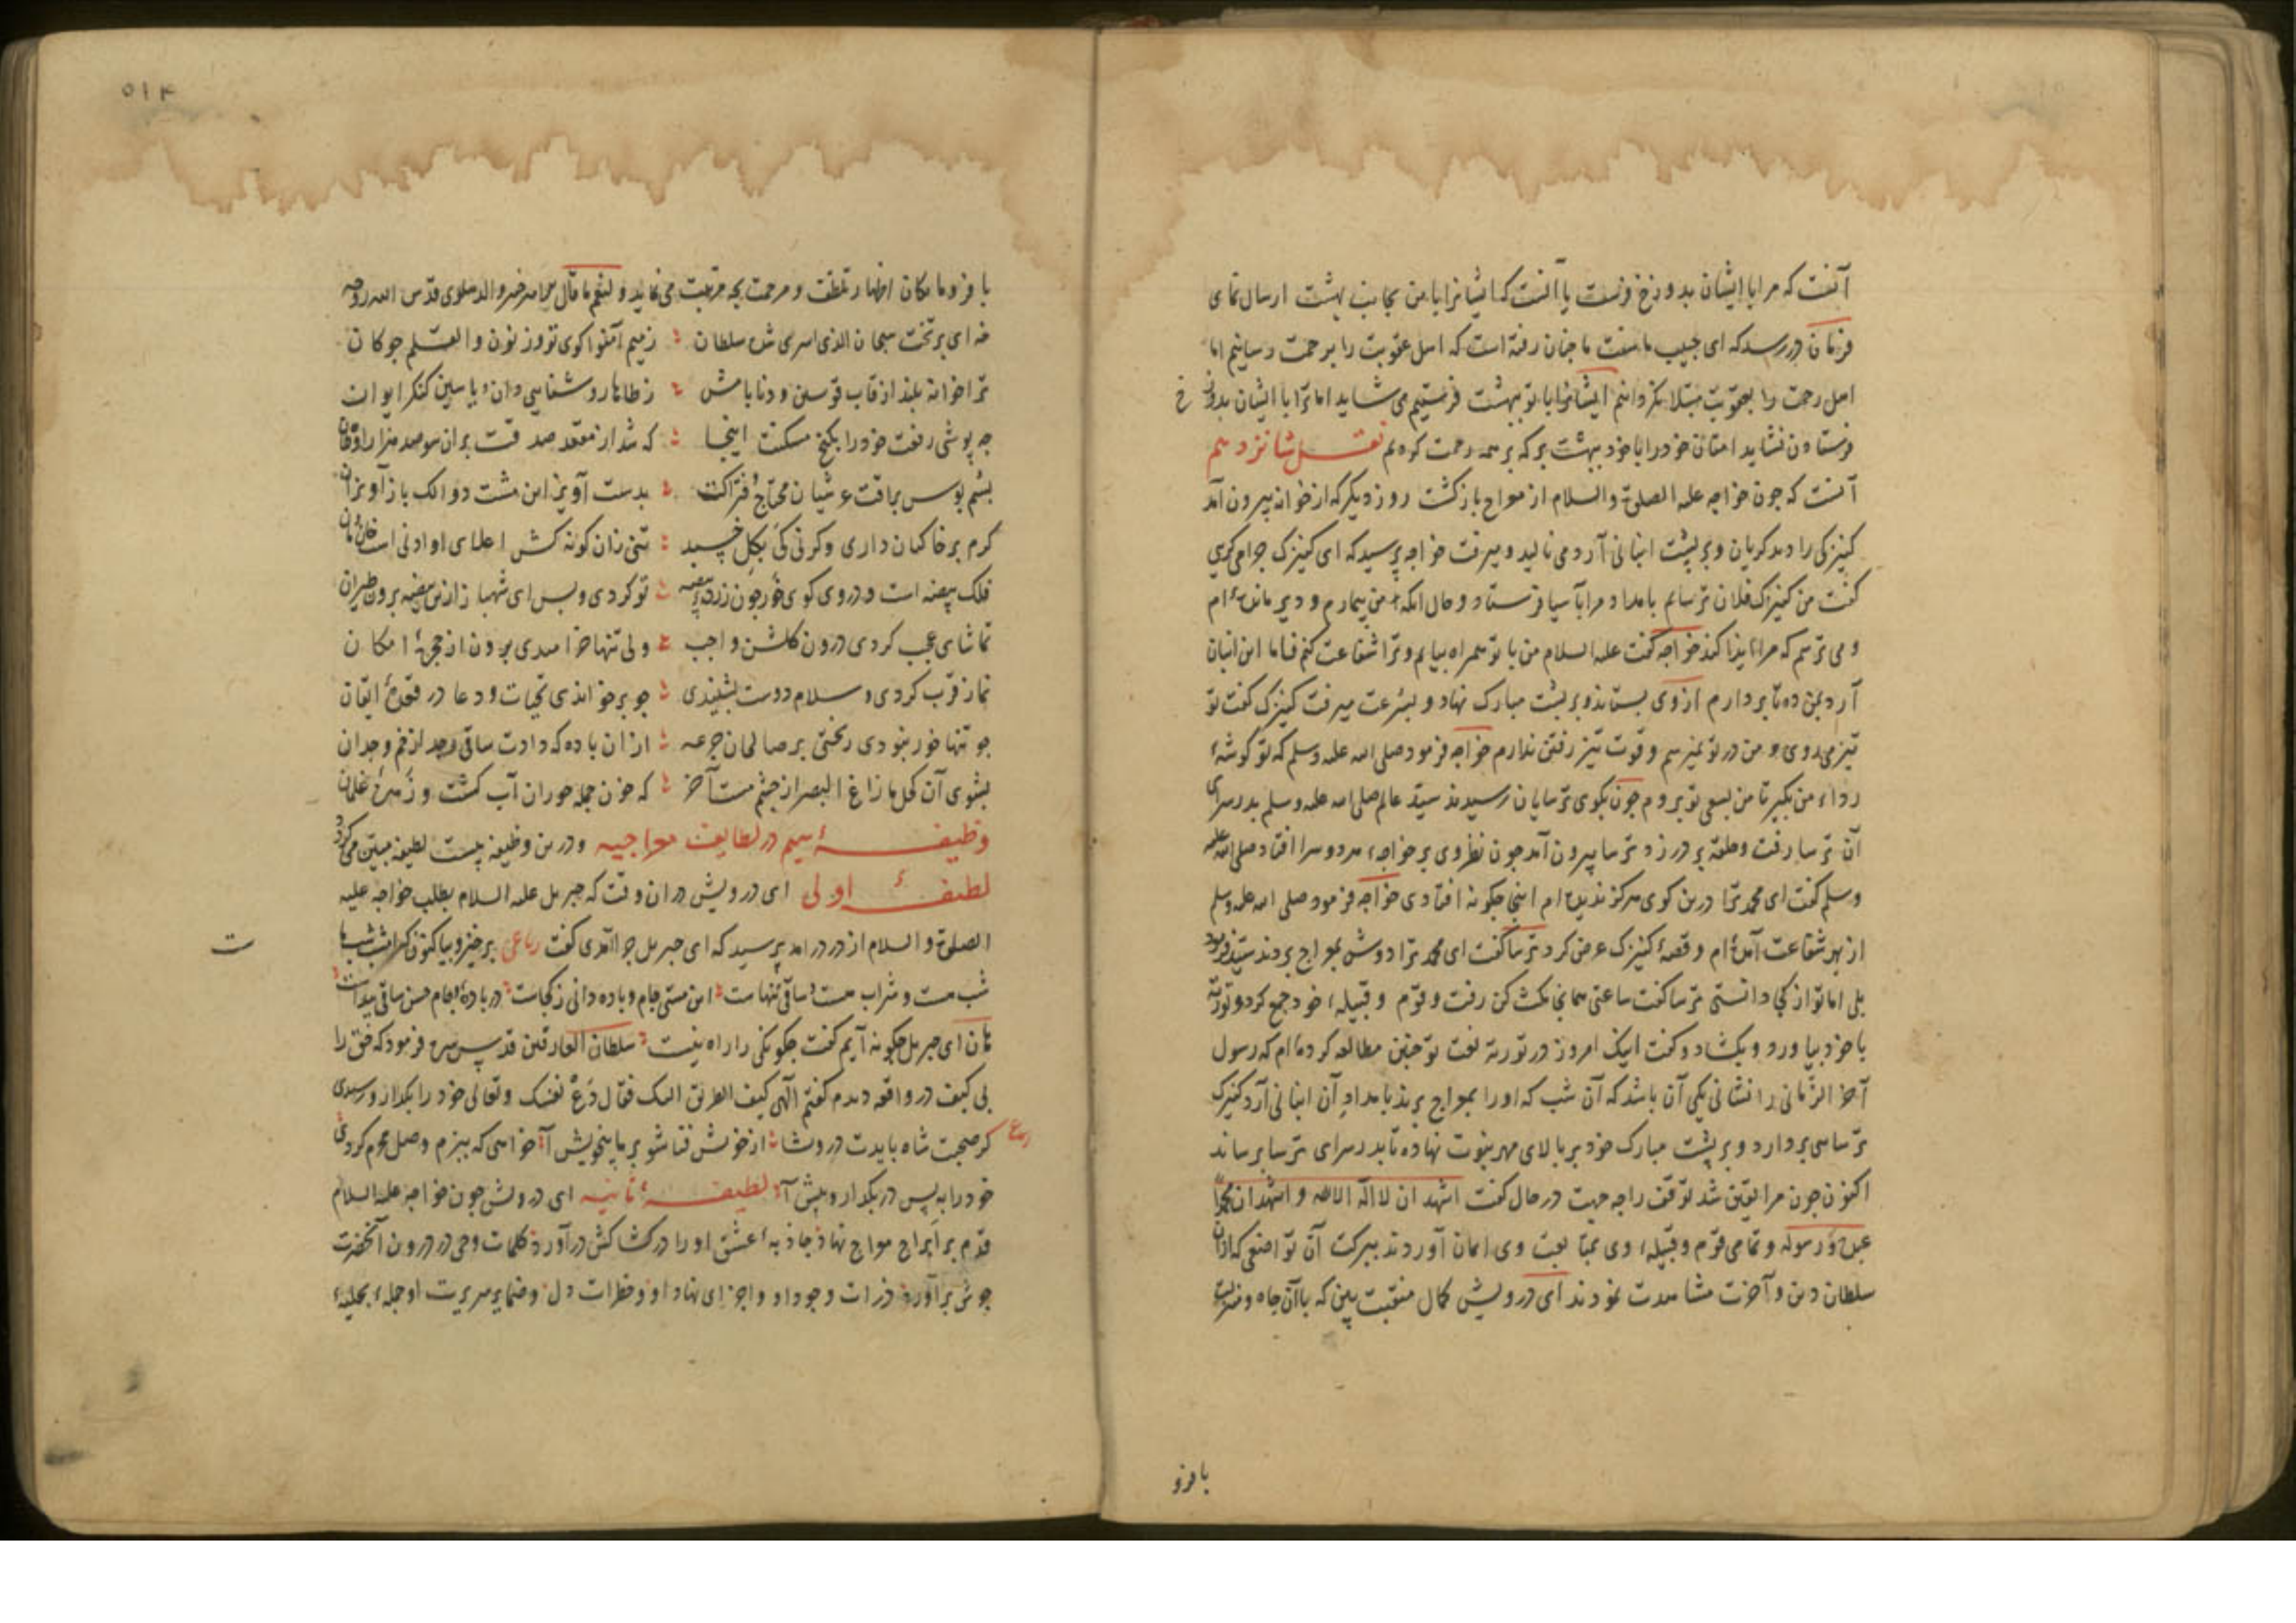 آنست که مرا با ایشان بدوزخ فرست یا آنست که ایشانرا با من بجانب بهشت ارسال نمای
فرمان در رسد که ای حبیب ما سنت ما چنان رفته است که اهل عقوبت را برحمت رسانیم اما
اهل رحمت را بعقوبت مبتلا نکردانیم ایشانرا با تو ببهشت فرستیم می شاید اما ترا با ایشان بدوزخ
فرستادن نشاید امتان خود را با خود ببهشت بر که بر همه رحمت کردم نقل شانزدهم
آنست که چون خواجه علیه الصلوة والسلام از معراج بازکشت روز دیکر که از خانه بیرون آمد
کنیزکی را دید کریان و بر پشت انبانی آرد می نالید و میرفت خواجه پرسید که ای کنیزک چرا می کریی
کفت من کنیزک فلان ترسایم بامداد مرا بآسیا فرستاد و حال آنکه من بیمارم و دیر مانده ام
و می ترسم که مرا ایذا کند خواجه کفت علیه السلام من با تو همراه بیایم و ترا شفاعت کنم فاما این انبان
آرد بمن ده تا بردارم از وی بستاند و بر پشت مبارک نهاد و بسرعت میرفت کنیزک کفت تو
تیز میروی و من در تو نمیرسم و قوت تیز رفتن ندارم خواجه فرمود صلی الله علیه وسلم که تو کوشهٔ
رداء من بکیر تا من بسعی تو بروم چون بکوی ترسایان رسیدند سید عالم صلی الله علیه وسلم بدر سرای
آن ترسا رفت و حلقه بر در زد ترسا بیرون آمد چون نظر وی بر خواجهٔ هر دو سرا افتاد صلی الله علیه
وسلم کفت ای محمد ترا درین کوی هرکز ندیده ام اینجا چکونه افتادی خواجه فرمود صلی الله علیه وسلم
از بهر شفاعت آمده ام و قصهٔ کنیزک عرض کرد ترسا کفت ای محمد ترا دوش بمعراج بردند سید فرمود
بلی اما تو از کجا دانستی ترسا کفت ساعتی همانجا مکث کن رفت و قوم و قبیلهٔ خود جمع کرد و توریة
با خود بیاورد و بکشاد و کفت اینک امروز در توریة نعت تو چنین مطالعه کرده ام که رسول
آخر الزمانی را نشانی یکی آن باشد که آن شب که او را بمعراج برند بامداد آن انبانی آرد کنیزک
ترسایی بردارد و بر پشت مبارک خود بر بالای مهر نبوت نهاده تا بدر سرای ترسا برساند
اکنون چون مرا یقین شد توقف را چه جهت در حال کفت اشهد ان لا اله الا الله و اشهد ان محمدا
عبده و رسوله و تمامی قوم و قبیلهٔ وی بمتابعت وی ایمان آوردند ببرکت آن تواضعی که از آن
سلطان دین و آخرت مشاهدت نمودند ای درویش کمال منقبت بین که با آن جاه و منزلت
با فرو
۵۱۴
با فروماندکان اظهار تلطف و مرحمت بچه مرتبت می نماید و لنعم ما قال میر خسرو الدهلوی قدس الله روحه
زهی ای بر تخت سبحان الذی اسری شده سلطان زمیم آمنوا کوی تو وز نون والقلم چوکان
ترا خوانه بلند از قاب قوسین و دنا بامش ز طاها روشناسی دان و یاسین کنکر ایوان
چه پوشی رفعت خود را بکنج مسکنت اینجا که شد از مقعد صدقت بران سو صد هزار
بسم بوس براقت عرشیان محتاج فتراکت بدست آویز این مشت دوالک باز آویزان
کرم بر خاکیان داری وکرنی کی بکل خسبد تنی زان کونه کش اعلای او ادنی است
فلک بیضه است و در وی کوی خور چون زردی بیضه تو کردی و بس ای شهباز ازین بیضه برون طیران
تماشای عجب کردی درون کلشن واجب ولی تنها خرامیدی برون از حجرهٔ امکان
نماز قرب کردی و سلام دوست بشنیدی چو بر خواندی تحیات و دعا در قعدهٔ ایقان
چو تنها خور نبودی ریختی بر صالحان جرعه ازان باده که دادت ساقی وحد از خم وجدان
بشوی آن کحل ما زاغ البصر از چشم مست آخر که خون جمله حوران آب کشت و زهرهٔ غلمان
وظیفهٔ سیم در لطایف معراجیه و درین وظیفه بیست لطیفه مبین می کردد
لطیفهٔ اولی ای درویش دران وقت که جبریل علیه السلام بطلب خواجه علیه
الصلوة والسلام از در درآمد پرسید که ای جبریل چرا آمدی کفت رباعی برخیز و بیا کنون که امشب شب ماست
شب مست و شراب مست و ساقی تنهاست این مستی جام و باده دانی ز کجاست در بادهٔ جام حسن ساقی پیداست
هان ای جبریل چکونه آیم کفت چکونکی را راه نیست سلطان العارفین قدس سره فرمود که حق را
بی کیف در واقعه دیدم کفتم الهی کیف الطریق الیک فقال دع نفسک و تعالی خود را بکذار و رسیدی
رباعی کر صحبت شاه بایدت درویشا از خویش فنا شو بر ما بیخویش آ خواهی که ببزم وصل محرم کردی
خود را به پس در بکذار و پیش آ لطیفهٔ ثانیه ای درویش چون خواجه علیه السلام
قدم بر ابراج معراج نهاد جاذبهٔ عشق او را در کشاکش درآورد کلمات وحی در درون آنحضرت
جوش برآورد ذرات وجود او و اجزای نهاد او و خطرات دل و ضمایر سریرت او جمله بحلیهٔ